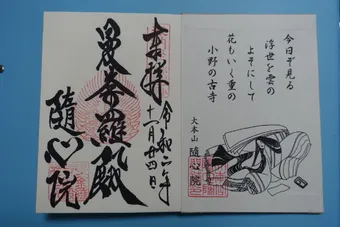 今日ぞ見る
浮世を雲の
よそにして
花もいく重の
小野の古寺
大本山 随心院
奉拝
令和二年
十一月廿四日
曼荼羅殿
隨心院